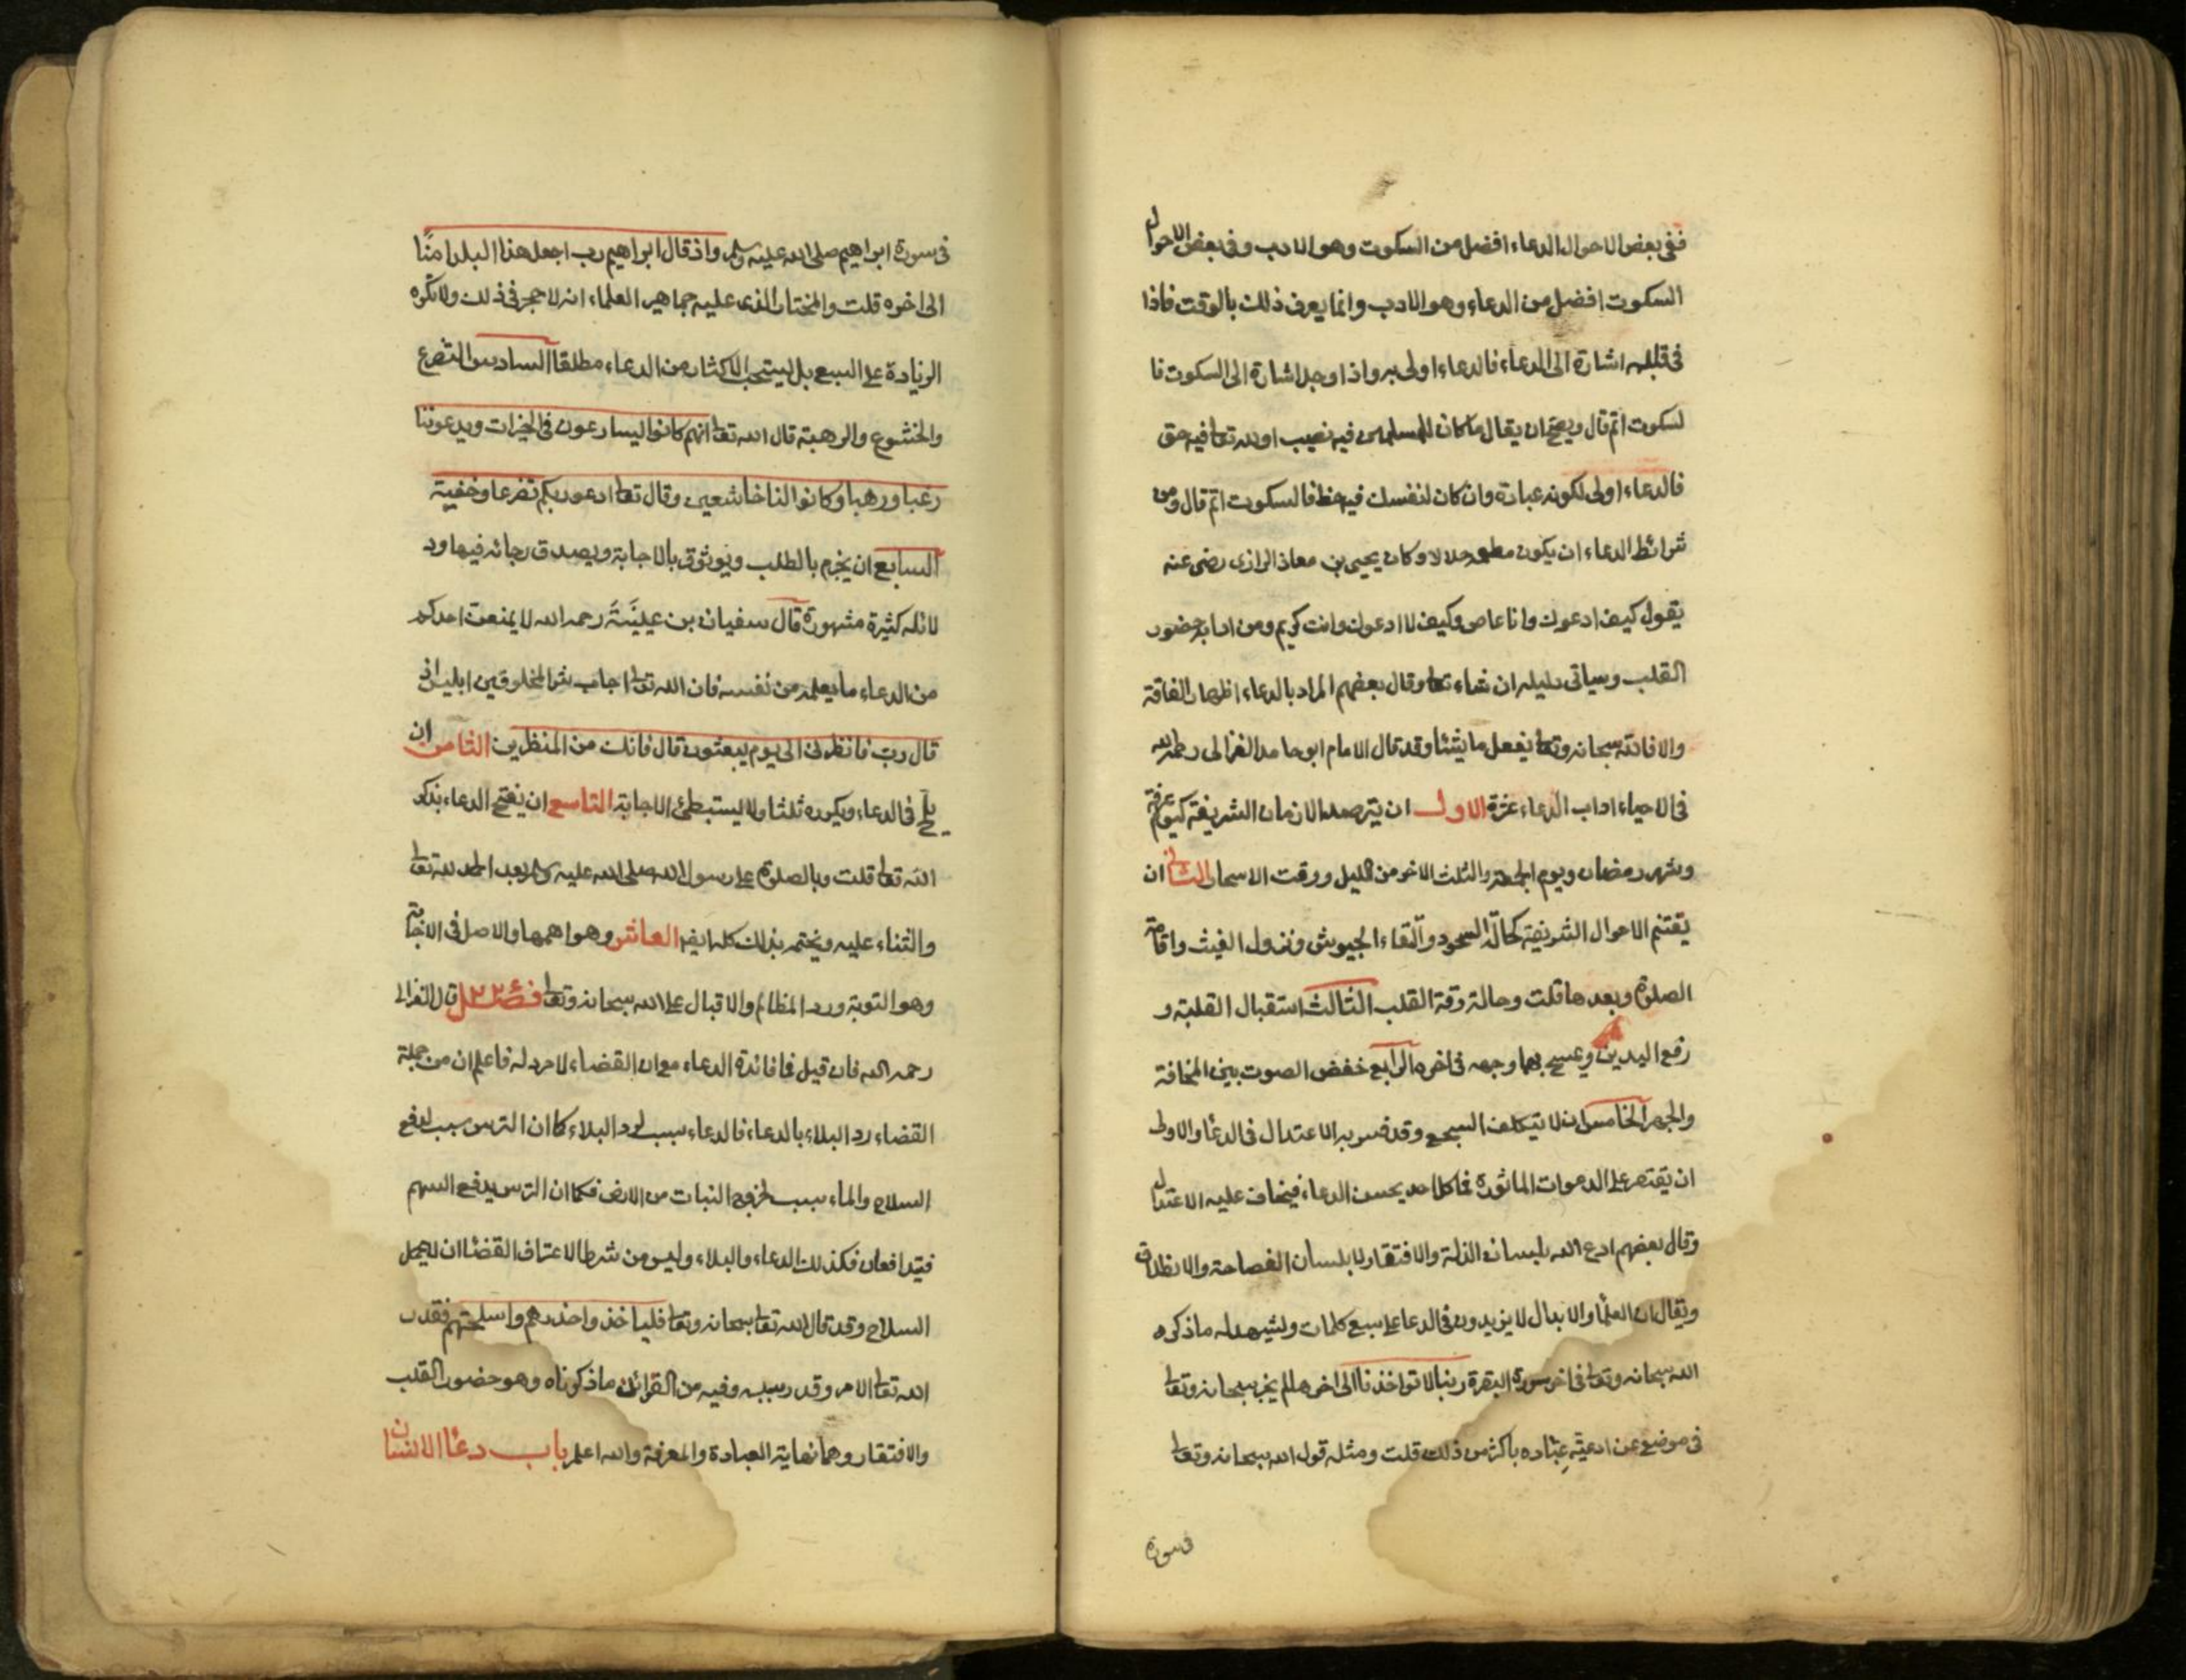 ففى بعض الاحوال الدعاء افضل من السكوت وهو الادب وفى بعض الاحوال
السكوت افضل من الدعاء وهو الادب وانما يعرف ذلك بالوقت فاذا
فى قلبه اشارة الى الدعاء فالدعاء اولى به واذا وجد اشارة الى السكوت فا
لسكوت اتم قال ويصح ان يقال ما كان للمسلمين فيه نصيب او لله تعا فيه حق
فالدعاء اولى لكونه عبادة وان كان لنفسك فيه حظ فالسكوت اتم قال ومن
شرائط الدعاء ان يكون مطعمه حلالا وكان يحيى بن معاذ الرازى رضى عنه
يقول كيف ادعوك وانا عاص وكيف لا ادعوك وانت كريم ومن ادابه حضور
القلب وسياتى دليله ان شاء تعا وقال بعضهم المراد بالدعاء اظهار الفاقة
والا فالله سبحانه وتعا يفعل ما يشاء وقد قال الامام ابو حامد الغزالى رحمه الله
فى الاحياء اداب الدعاء عشرة الاول ان يترصد الازمان الشريفة كيوم عرفة
وشهر رمضان ويوم الجمعة والثلث الاخر من الليل ووقت الاسحار الثانى ان
يغتنم الاحوال الشريفة كحالة السجود والتقاء الجيوش ونزول الغيث واقامة
الصلوة وبعدها قلت وحالة رقة القلب الثالث استقبال القلبة و
رفع اليدين ويمسح بهما وجهه فى اخره الرابع خفض الصوت بين المخافة
والجهر الخامس ان لا يتكلف السجع وقد فسر به الاعتدال فى الدعاء والاولى
ان يقتصر على الدعوات الماثورة فما كل احد يحسن الدعاء فيخاف عليه الاعتدال
وقال بعضهم ادع الله بلسان الذلة والافتقار لا بلسان الفصاحة والانطلاق
ويقال ان العلماء والابدال لا يزيدون فى الدعا على سبع كلمات ويشهد له ما ذكره
الله سبحانه وتعا فى اخر سورة البقرة ربنا لا تواخذنا الى اخرها لم يخبر سبحانه وتعا
فى موضع عن ادعية عباده باكثر من ذلك قلت ومثله قول الله سبحانه وتعا
فى سورة
فى سورة ابراهيم صلى الله عليه وسلم واذ قال ابراهيم رب اجعل هذا البلد امنا
الى اخره قلت والمختار الذى عليه جماهير العلماء انه لا حجر فى ذلك ولا تكره
الزيادة على السبع بل يستحب الاكثار من الدعاء مطلقا السادس التضرع
والخشوع والرهبة قال الله تعا انهم كانوا يسارعون فى الخيرات ويدعوننا
رغبا ورهبا وكانوا لنا خاشعين وقال تعا ادعوا ربكم تضرعا وخفية
السابع ان يجزم بالطلب ويوثوق بالاجابة ويصدق رجائه فيها ود
لائله كثيرة مشهورة قال سفيان بن عيينة رحمه الله لا يمنعن احدكم
من الدعاء ما يعلمه من نفسه فان الله تعا اجاب شر المخلوقين ابليس اذ
قال رب فانظرنى الى يوم يبعثون قال فانك من المنظرين الثامن ان
يلح فى الدعاء ويكرره ثلثا ولا يستبطئ الاجابة التاسع ان يفتح الدعاء بذكر
الله تعا قلت وبالصلوة على رسول الله صلى الله عليه وسلم بعد الحمد لله تعا
والثناء عليه ويختمه بذلك كله ايضا العاشر وهو اهمها والاصل فى الاجابة
وهو التوبة ورد المظالم والاقبال على الله سبحانه وتعا فصل قال الغزالى
رحمه الله فان قيل فما فائدة الدعاء مع ان القضاء لا مرد له فاعلم ان من جملة
القضاء رد البلاء بالدعاء فالدعاء سبب لرد البلاء كما ان الترس سبب لدفع
السلاح والماء سبب لخروج النبات من الارض فكما ان الترس يدفع السهم
فيتدافعان فكذلك الدعاء والبلاء وليس من شرط الاعتراف القضاء ان لا يحمل
السلاح وقد قال الله تعا سبحانه وتعا فلياخذوا حذرهم واسلحتهم فقدر
الله تعا الامر وقدر سببه وفيه من القرائن ما ذكرناه وهو حضور القلب
والافتقار وهما نهاية العبادة والمعرفة والله اعلم باب دعاء الانسان